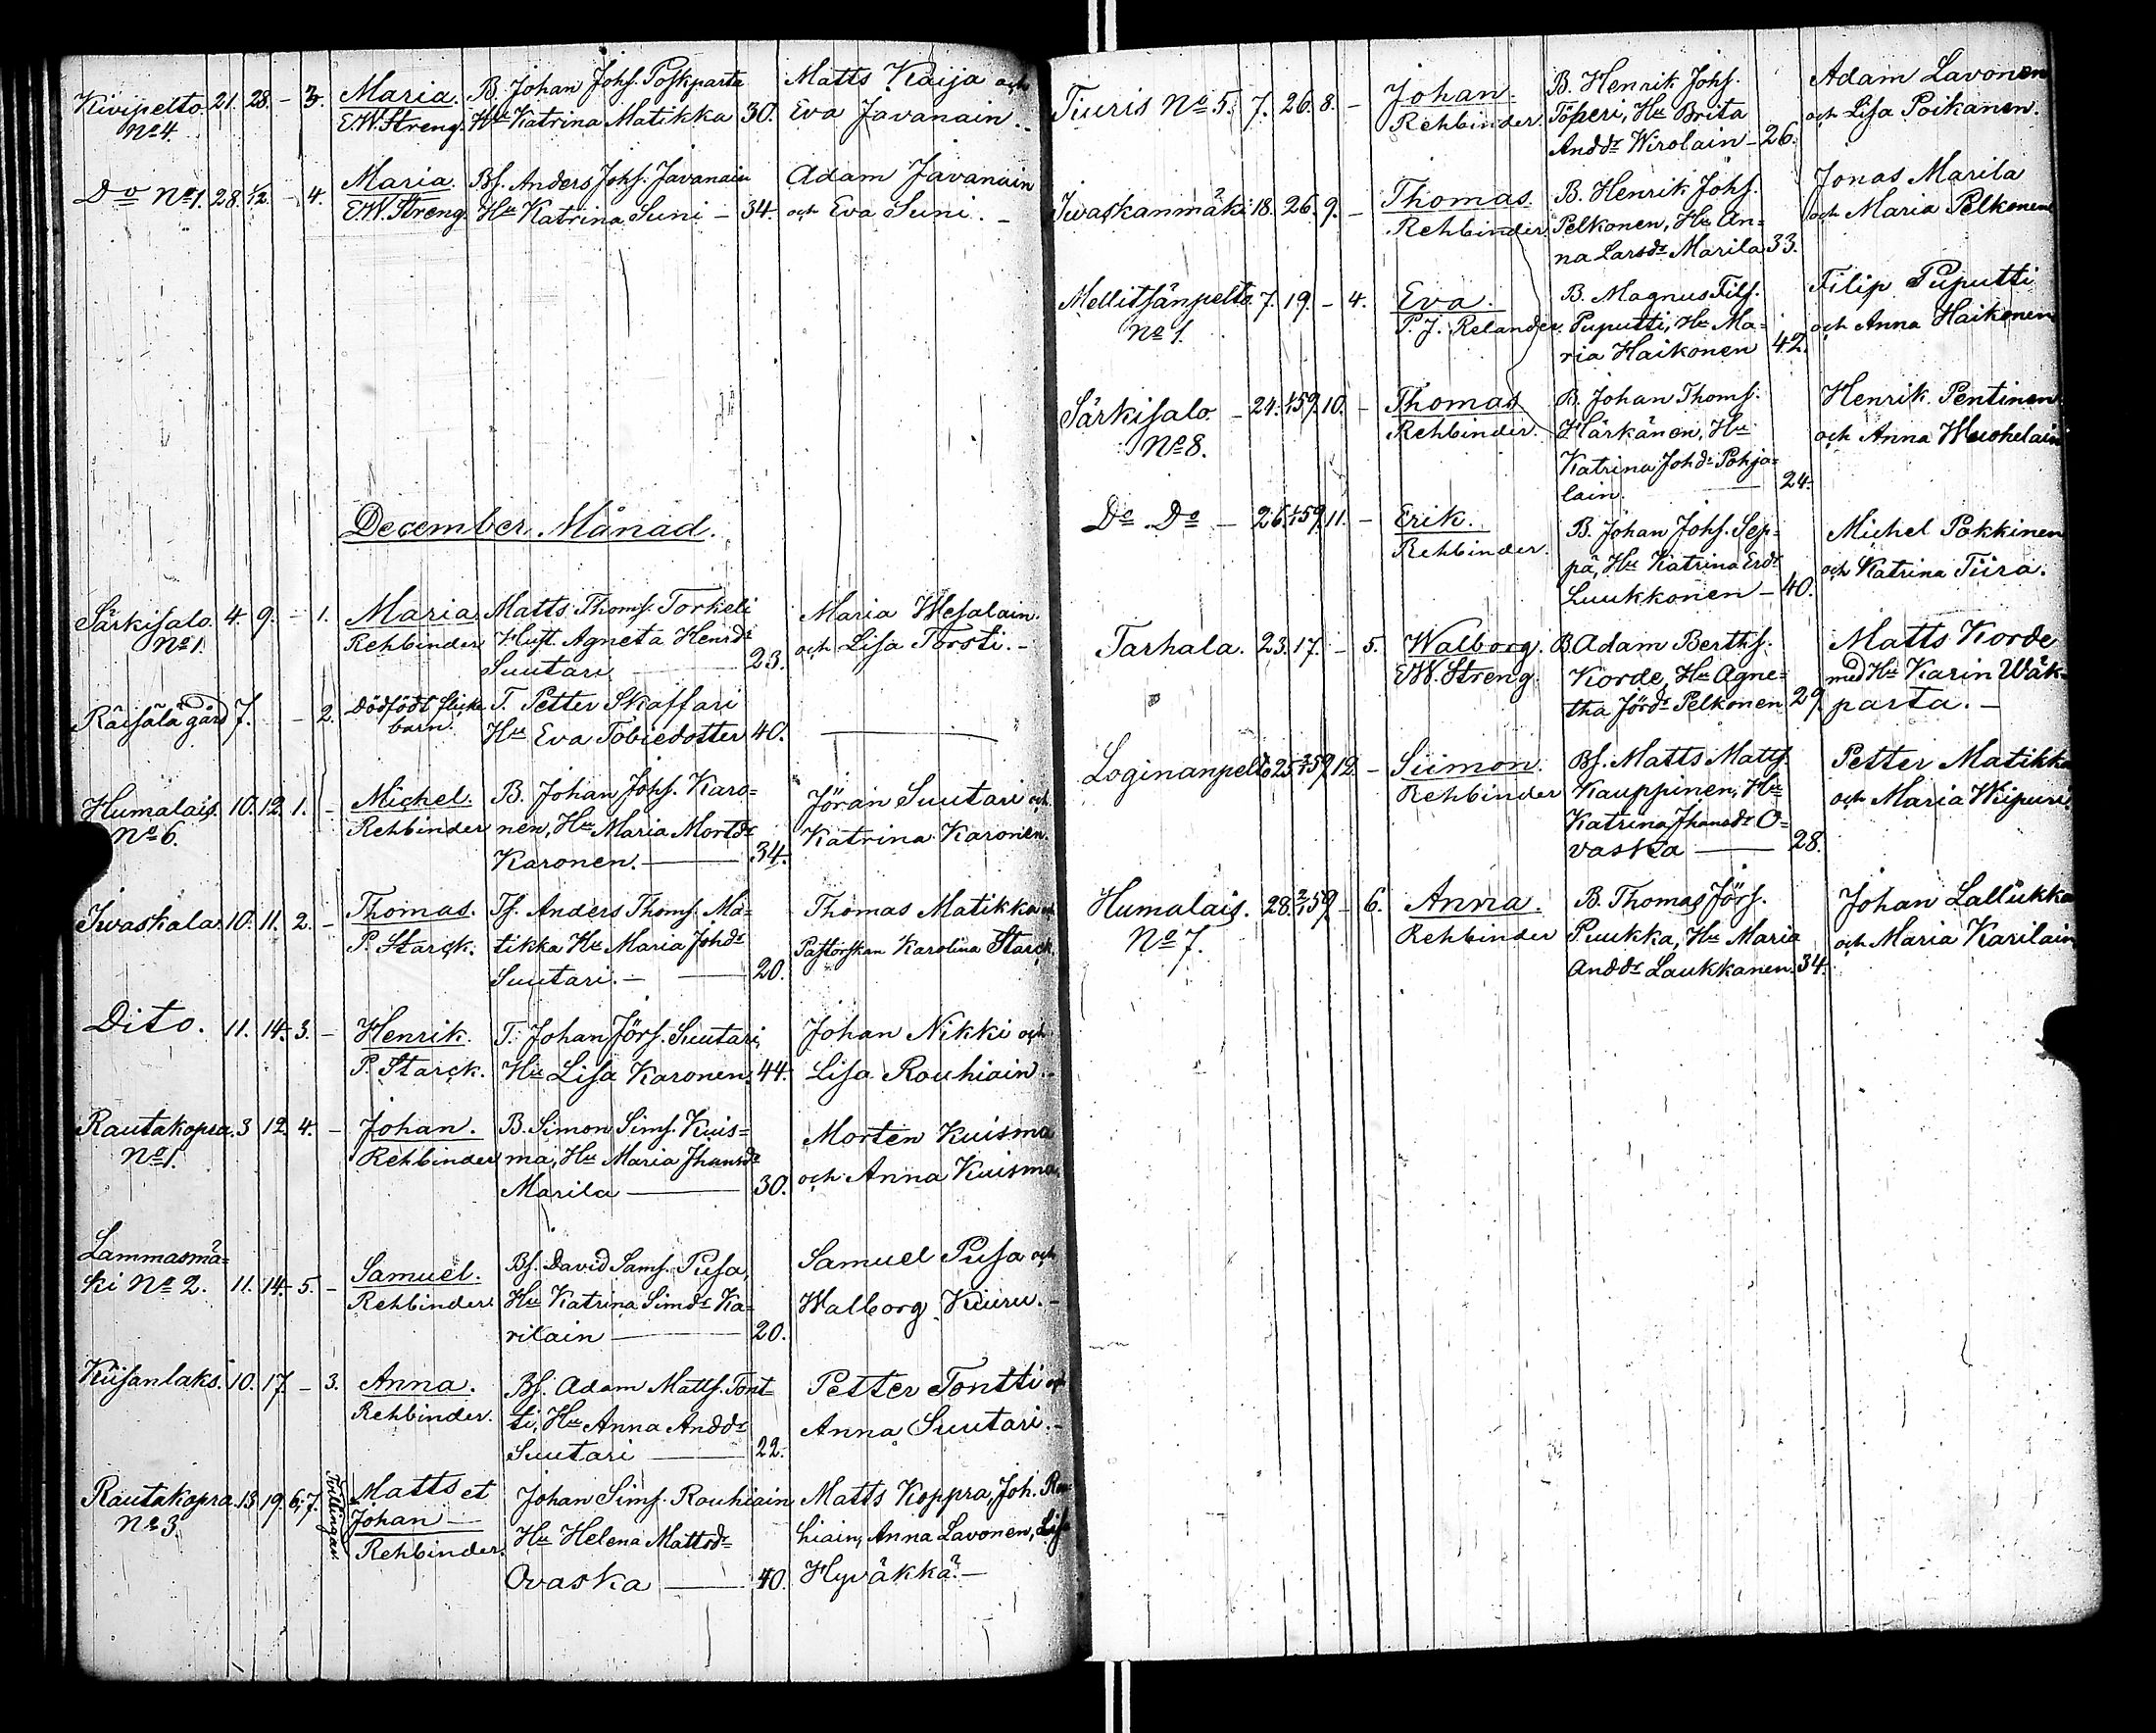 Kivipelto 21. 28. - 3. Maria. B. Johan Johs. Poskparta Matts Kaija och
No 4. E.W. Streng. Hu Katrina Matikka 30. Eva Javanain.
Do No 1. 28. 1/12. - 4. Maria. Bs. Anders Johs. Javanain Adam Javanain
E.W. Streng. Hu Katrina Suni - 34. och Eva Suni. -
December Månad.
Särkisalo. 4. 9. - 1. Maria. Matts Thoms. Torkeli Maria Wesalain.
No 1. Rehbinder Hust. Agneta Henrdr och Lisa Torsti. -
Suutari 23.
Räisälä gård 7. - 2. Dödfödt flicke T. Petter Skaffari
barn. Hu Eva Tobiedotter 40.
Humalais. 10. 12. 1. - Michel. B. Johan Johs. Karo= Jöran Suutari och
No 6. Rehbinder nen, Hu Maria Mortdr Katrina Karonen.
Karonen. 34.
Iwaskala. 10. 11. 2. - Thomas. Ts. Anders Thoms. Ma= Thomas Matikka och
P. Starck. tikka Hu Maria Johdr Pastorskan Karolina Starck.
Suutari. 20.
Dito. 11. 14. 3. - Henrik. T. Johan Jörs. Suutari, Johan Nikki och
P. Starck. Hu Lisa Karonen. 44. Lisa Rouhiain.
Rautakopra. 3 12. 4. - Johan. B. Simon Sims. Kuis= Morten Kuisma
No 1. Rehbinder ma, Hu Maria Jhansdr och Anna Kuisma.
Marila 30.
Lammasmä=
ki No 2. 11. 14. 5. - Samuel. Bs. David Sams. Pusa, Samuel Pusa och
Rehbinder. Hu Katrina Simdr Ka= Walborg Kiuru. -
rilain 20.
Kiisanlaks. 10. 17. - 3. Anna. Bs. Adam Matts. Tont= Petter Tontti och
Rehbinder. ti, Hu Anna Anddr Anna Suutari. -
Suutari 22.
Rautakopra. 13. 19. 6,7. Tvillingar Matts et Johan Sims. Rouhiain Matts Koppra, Joh. Rou=
No 3. Johan - Hu Helena Mattsdr hiain, Anna Lavonen, Lisa
Rehbinder. Ovaska 40. Hyväkkä. -
Tiuris No 5. 7. 26. 8. - Johan. B. Henrik Johs. Adam Lavonen
Rehbinder. Töperi, Hu Brita och Lisa Poikanen.
Anddr Wirolain - 26.
Iwaskanmäki 18. 26. 9. - Thomas. B. Henrik Johs. Jonas Marila
Rehbinder. Pelkonen, Hu An= och Maria Pelkonen
na Larsdr Marila 33.
Mellitsänpelto. 7. 19. - 4. Eva. B. Magnus Fils. Filip Puputti
No 1. P. J. Relander. Puputti, Hu Ma= och Anna Haikonen
ria Haikonen 42.
Särkisalo - 24. 1/1 59. 10. - Thomas B. Johan Thoms. Henrik Pentinen
No 8. Rehbinder. Härkänen, Hu och Anna Wuohelain
Katrina Johdr Pohja=
lain. 24.
Do Do - 26. 1/1 59. 11. - Erik. B. Johan Johs. Sep= Michel Pokkinen
Rehbinder. pä, Hu Katrina Erdr och Katrina Tiira.
Luukkonen - 40.
Tarhala. 23. 17. - 5. Walborg. B. Adam Berths. Matts Korde
E.W. Streng. Korde, Hu Agne= med Hu Karin Wäk=
tha Jördr Pelkonen 29. parta. -
Loginanpelto 25. 2/1 59. 12. - Siimon. Bs. Matts Matts. Petter Matikka
Rehbinder Kauppinen, Hu och Maria Wiipuri.
Katrina Jhansdr O=
vaska 28.
Humalais. 28. 2/1 59 - 6. Anna. B. Thomas Jörs. Johan Lallukka
No 7. Rehbinder Puukka, Hu Maria och Maria Karilain
Anddr Laukkanen. 34.